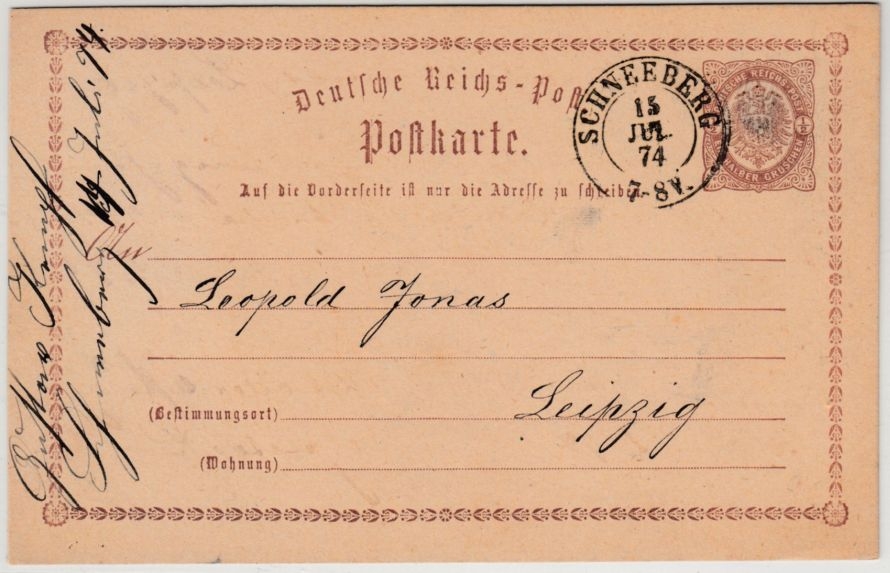 Deutsche Reichs-Post
Postkarte.
Auf die Vorderseite ist nur die Adresse zu schreiben.
SCHNEEBERG
15
JUL.
74
7-8V.
DEUTSCHE REICHS POST
1/2
EIN HALBER GROSCHEN
An
Leopold Jonas
(Bestimmungsort)
Leipzig
(Wohnung)
Gustav
Schneeberg 14 Juli 74.